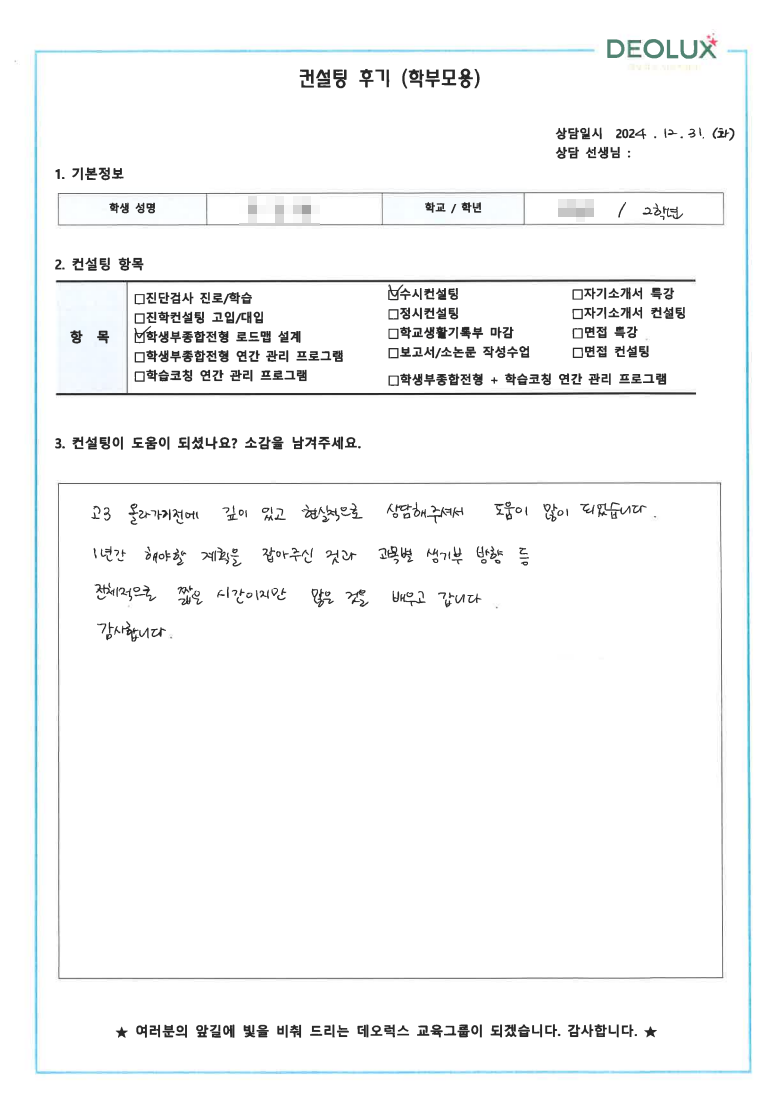 DEOLUX
컨설팅 후기 (학부모용)
상담일시 2024 . 12 . 31. (화)
상담 선생님 :
1. 기본정보
학생 성명
학교 / 학년
/ 2학년
2. 컨설팅 항목
항 목
□진단검사 진로/학습
□진학컨설팅 고입/대입
☑학생부종합전형 로드맵 설계
□학생부종합전형 연간 관리 프로그램
□학습코칭 연간 관리 프로그램
☑수시컨설팅
□정시컨설팅
□학교생활기록부 마감
□보고서/소논문 작성수업
□학생부종합전형 + 학습코칭 연간 관리 프로그램
□자기소개서 특강
□자기소개서 컨설팅
□면접 특강
□면접 컨설팅
3. 컨설팅이 도움이 되셨나요? 소감을 남겨주세요.
고3 올라가기전에 깊이 있고 현실적으로 상담해주셔서 도움이 많이 되었습니다.
1년간 해야할 계획을 잡아주신 것과 과목별 생기부 방향 등
전체적으로 짧은 시간이지만 많은 것을 배우고 갑니다.
감사합니다.
★ 여러분의 앞길에 빛을 비춰 드리는 데오럭스 교육그룹이 되겠습니다. 감사합니다. ★